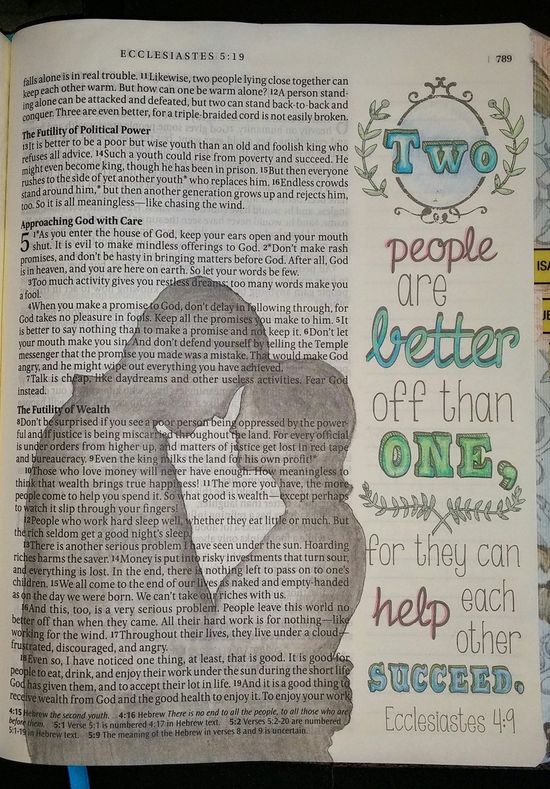 ECCLESIASTES 5:19
789
falls alone is in real trouble. 11Likewise, two people lying close together can
keep each other warm. But how can one be warm alone? 12A person stand-
ing alone can be attacked and defeated, but two can stand back-to-back and
conquer. Three are even better, for a triple-braided cord is not easily broken.
The Futility of Political Power
13It is better to be a poor but wise youth than an old and foolish king who
refuses all advice. 14Such a youth could rise from poverty and succeed. He
might even become king, though he has been in prison. 15But then everyone
rushes to the side of yet another youth* who replaces him. 16Endless crowds
stand around him,* but then another generation grows up and rejects him,
too. So it is all meaningless—like chasing the wind.
Approaching God with Care
5 1*As you enter the house of God, keep your ears open and your mouth
shut. It is evil to make mindless offerings to God. 2*Don't make rash
promises, and don't be hasty in bringing matters before God. After all, God
is in heaven, and you are here on earth. So let your words be few.
3Too much activity gives you restless dreams; too many words make you
a fool.
4When you make a promise to God, don't delay in following through, for
God takes no pleasure in fools. Keep all the promises you make to him. 5It
is better to say nothing than to make a promise and not keep it. 6Don't let
your mouth make you sin. And don't defend yourself by telling the Temple
messenger that the promise you made was a mistake. That would make God
angry, and he might wipe out everything you have achieved.
7Talk is cheap, like daydreams and other useless activities. Fear God
instead.
The Futility of Wealth
8Don't be surprised if you see a poor person being oppressed by the power-
ful and if justice is being miscarried throughout the land. For every official
is under orders from higher up, and matters of justice get lost in red tape
and bureaucracy. 9Even the king milks the land for his own profit!*
10Those who love money will never have enough. How meaningless to
think that wealth brings true happiness! 11The more you have, the more
people come to help you spend it. So what good is wealth—except perhaps
to watch it slip through your fingers!
12People who work hard sleep well, whether they eat little or much. But
the rich seldom get a good night's sleep.
13There is another serious problem I have seen under the sun. Hoarding
riches harms the saver. 14Money is put into risky investments that turn sour,
and everything is lost. In the end, there is nothing left to pass on to one's
children. 15We all come to the end of our lives as naked and empty-handed
as on the day we were born. We can't take our riches with us.
16And this, too, is a very serious problem. People leave this world no
better off than when they came. All their hard work is for nothing—like
working for the wind. 17Throughout their lives, they live under a cloud—
frustrated, discouraged, and angry.
18Even so, I have noticed one thing, at least, that is good. It is good for
people to eat, drink, and enjoy their work under the sun during the short life
God has given them, and to accept their lot in life. 19And it is a good thing to
receive wealth from God and the good health to enjoy it. To enjoy your work
4:15 Hebrew the second youth. 4:16 Hebrew There is no end to all the people, to all those who are
before them. 5:1 Verse 5:1 is numbered 4:17 in Hebrew text. 5:2 Verses 5:2-20 are numbered
5:1-19 in Hebrew text. 5:9 The meaning of the Hebrew in verses 8 and 9 is uncertain.
TWO
people
are
better
off than
ONE,
for they can
help each
other
SUCCEED.
Ecclesiastes 4:9
ISA